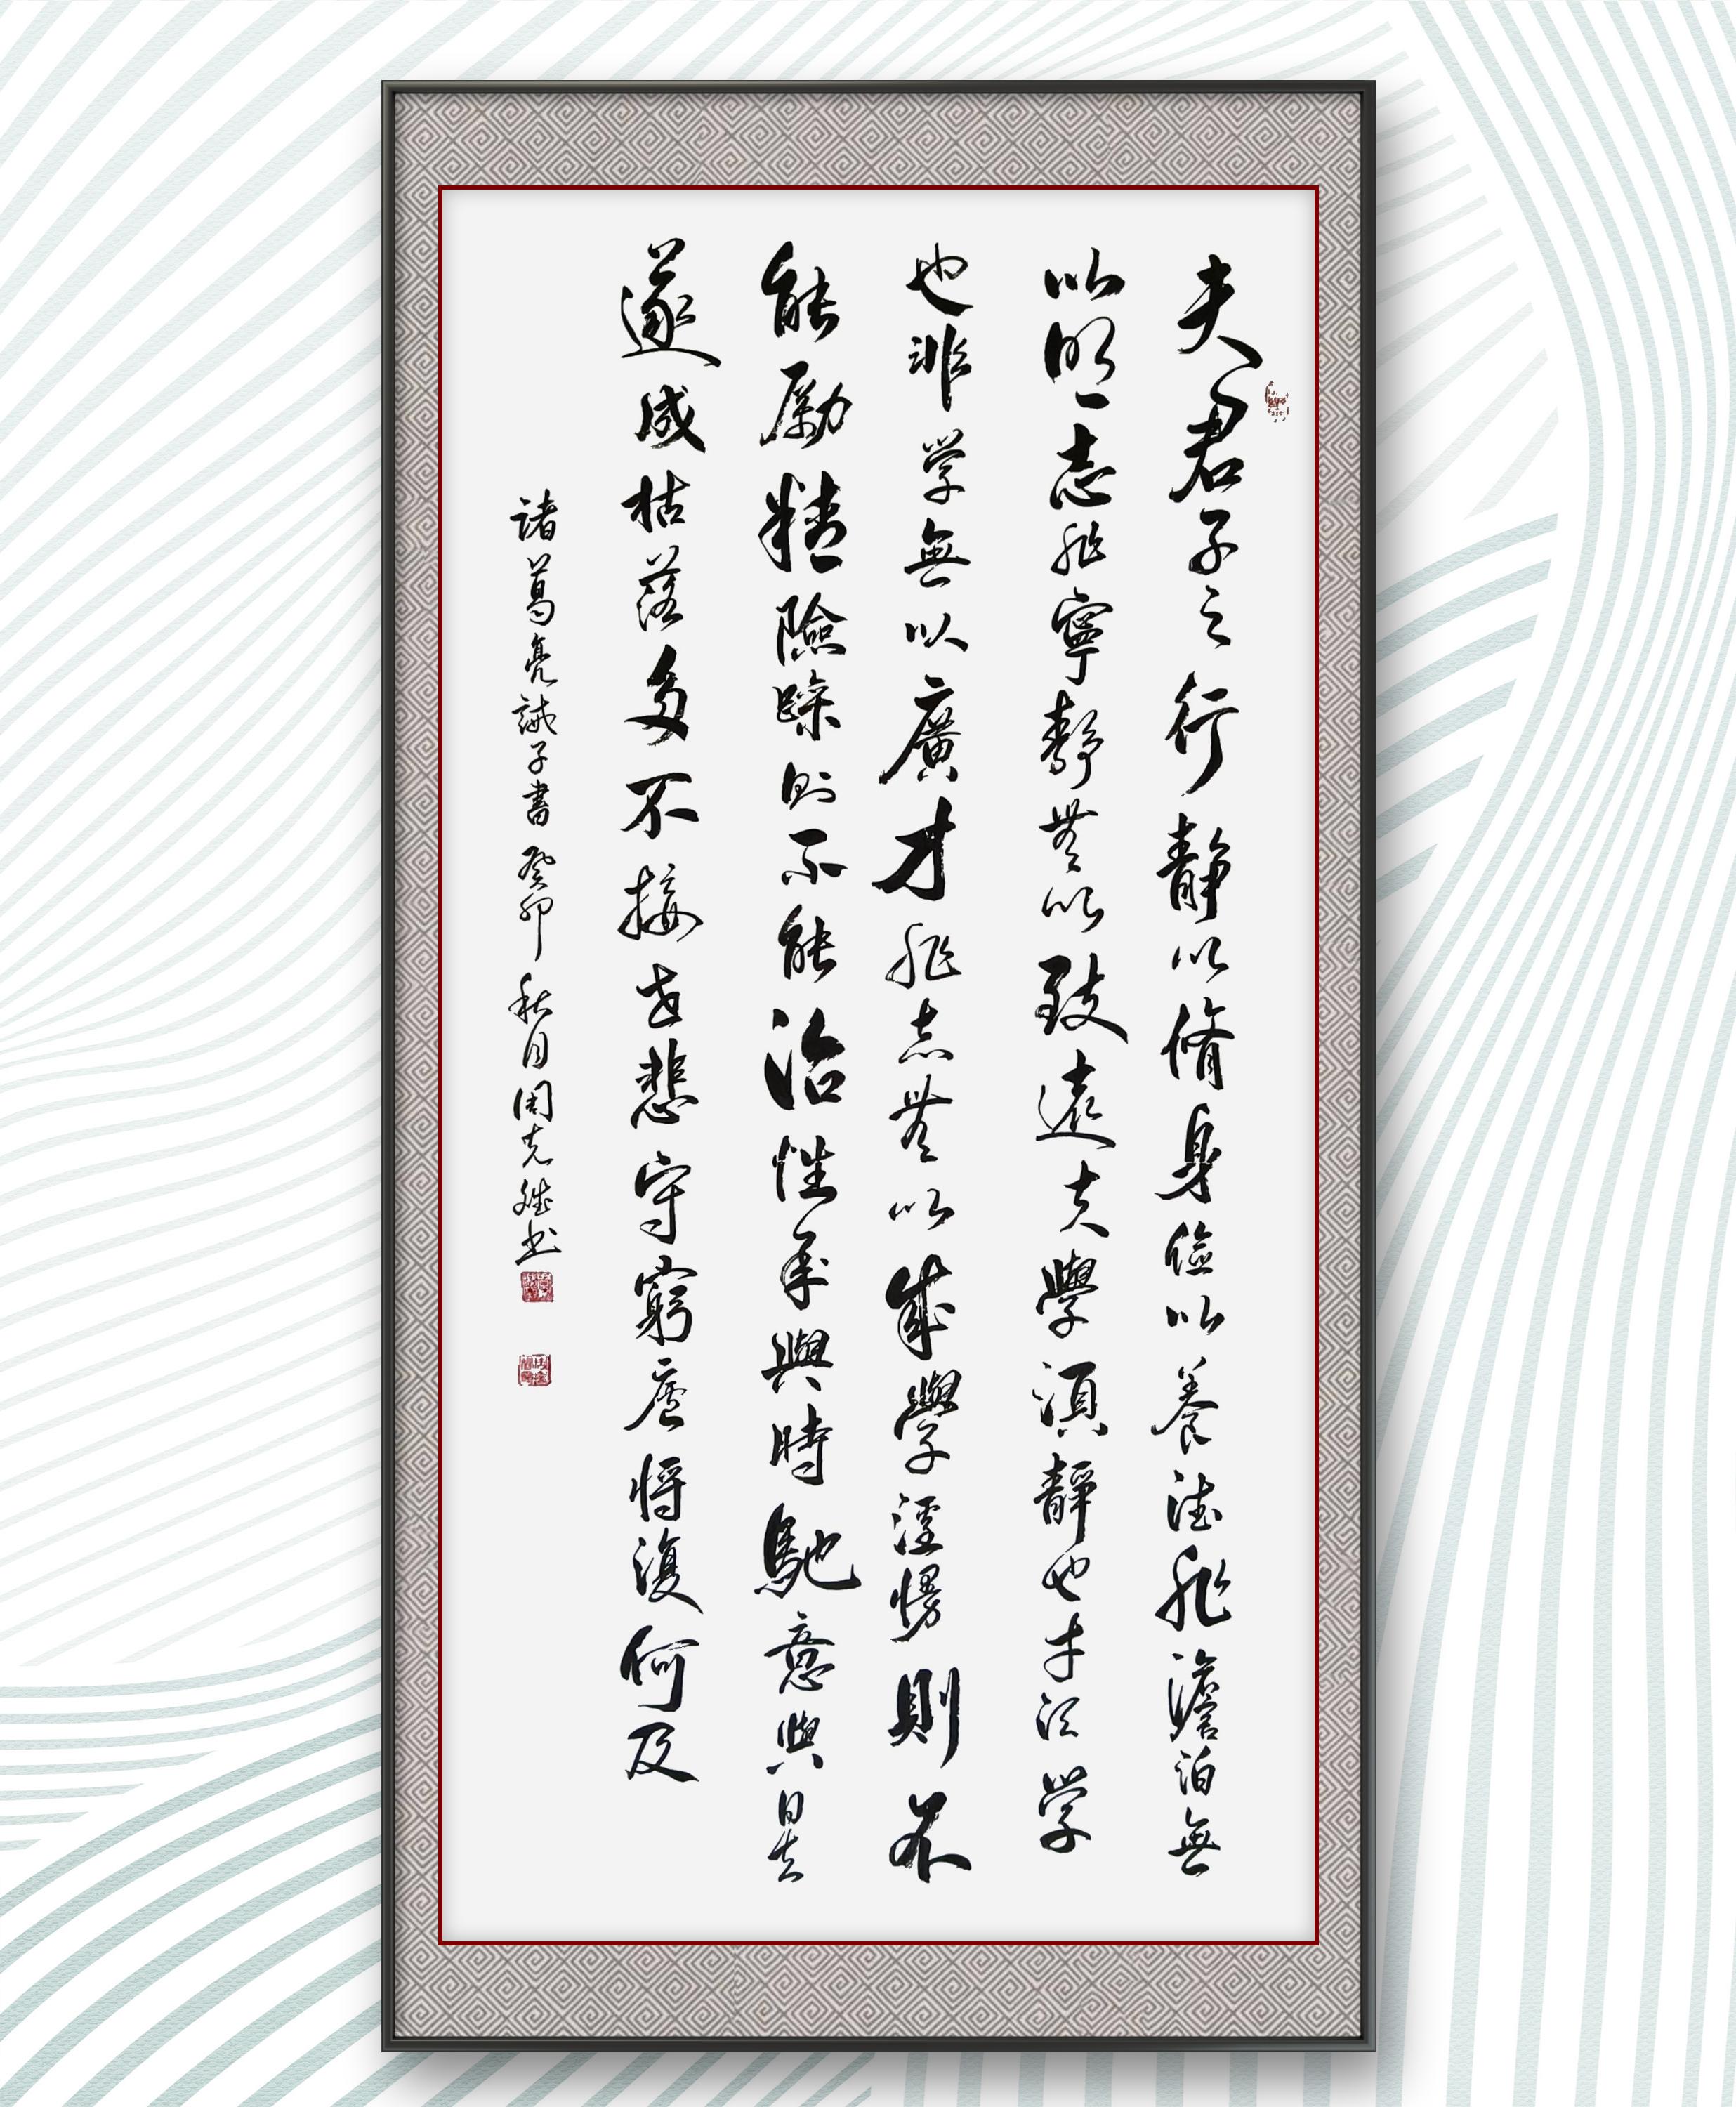 夫君子之行静以脩身儉以養德非澹泊無
以明志非寧静無以致遠夫學須静也才須学
也非学無以廣才非志無以成學淫慢則不
能勵精險躁則不能治性年與時馳意與日去
遂成枯落多不接世悲守窮廬将復何及
諸葛亮誡子書癸卯秋月周克雄书